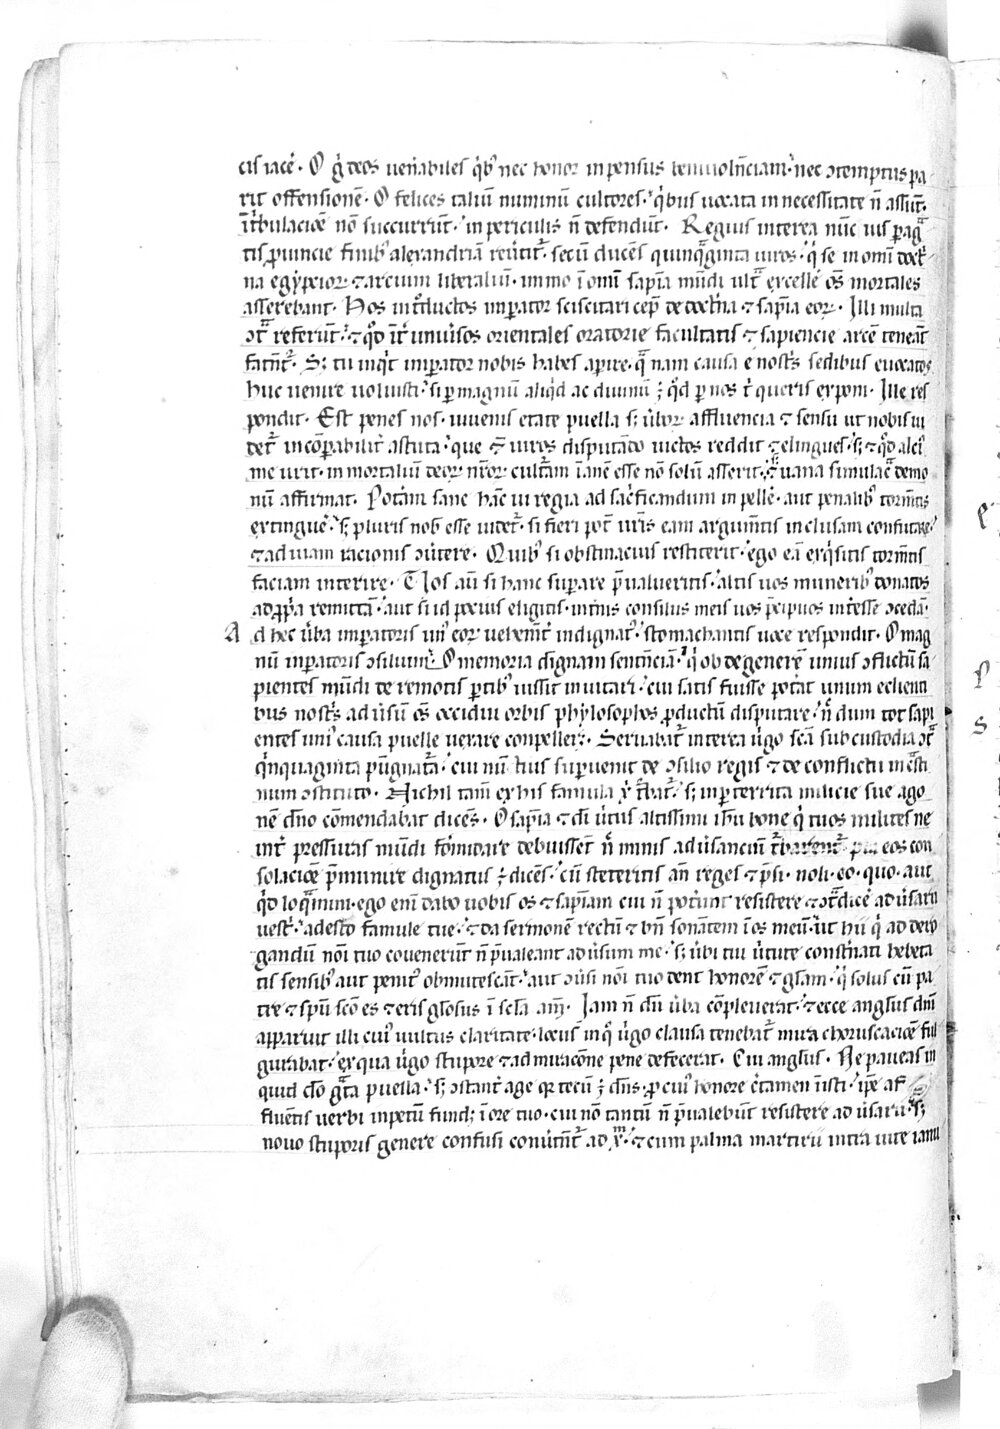 cis iacẽ. O gͥ deos uen̾abiles qͥbꝰ nec honor inpensus beniuolñciam. nec ɔtemptus pa
rit offensionẽ. O felices taliũ numinũ cultores. qͥbus uocata in necessitate ñ assũt.
ĩ tͥbulacõe nõ succurrũt. in periculis ñ defendũt. Regius interea nũc ius ꝑagͣ
tis ꝓuincie finibꝰ alexandriã reũtit᷑. secũ ducẽs quinqͣginta uiros. qͥ se in omni doctͥ
na egyp̃cior᷑. ⁊ arcium liberaliũ. immo ĩ om̃i sap̃ia mũdi ultͣ excelle᷑ oẽs mortales
asserebant. Hos int̾ductos inp̃ator sciscitari cep̃ de doctͥna ⁊ sap̃ia eor᷑. Illi multa
ɔtͣ referũt. ⁊ qͦd ĩt̾ uniũsos orientales oratorie facultatis ⁊ sapiencie arcẽ teneãt
fatẽt᷑. Sꝫ tu inqͥt inp̃ator nobis habes apire. qͣ nam causa e nostͥs sedibus euocatos
huc uenire uoluisti. si ꝑ magnũ aliqͥd ac diuinũ ÷ qͥd ꝑ nos t̾ queris exponi. Ille res
pondit. Est penes nos. iuuenis etate puella sꝫ ũbor᷑ affluencia ⁊ sensu ut nobis ui
det᷑ incõꝑabilit̾ astuta. que ⁊ uiros disputãdo uictos reddit ⁊ elingues. sꝫ ⁊ qͦd alciꝰ
me urit. inmortaliũ deor᷑ nr̃or᷑ cultͣam ĩanẽ esse nõ solũ asserit. ⁊ uana simulacͣ demo
nũ affirmat. Potãm sane hãc ui regia ad sacͥficandum inpellẽ. aut penalibꝰ tormẽtis
extinguẽ. sꝫ pluris nob̃ esse uidet᷑. si fieri pot̃ ur̃is eam argumẽtis inclusam confutare.
⁊ ad uiam racionis ɔũtere. Quibꝰ si obstinacius restiterit. ego eã exqͥsitis tormẽtis
faciam interire. Uos aũ si hanc suꝑare p̃ualueritis. altis uos muneribꝰ donatos
ad ꝓpͥa remittã. aut si id pocius eligitis. intimis consiliis meis uos p̃cipuos int̾esse ɔcedã.
Ad hec ũba inp̃atoris unꝰ eor᷑ uehemẽt̾ indignatꝰ. stomachantis uoce respondit. O mag
nũ inp̃atoris ɔsilium. O memoria dignam sentẽciã. qͥ ob degenerẽ unius ɔflictũ sa
pientes mũdi de remotis ꝑtibꝰ iussit inuitari. cui satis fuisse pot̾at unum e clienti
bus nostͥs ad ũsũ oẽs occidui orbis phylosophos ꝓductũ disputare. ñ dum tot sapi
entes uniꝰ causa puelle uexare conpellet᷑. Seruabat᷑ interea ũgo sc̃a sub custodia ɔtͣ
qͥnquaginta pũgnatͣa. cui nũcius suꝑuenit de ɔsilio regis ⁊ de conflictu incͣsti
num ɔstituto. Nichil tam̃ ex his famula xͥ tͥbat᷑. sꝫ inꝑterrita milicie sue ago
nẽ dño cõmendabat dicẽs. O sap̃ia ⁊ dĩ ũtus altissimi ih̃u bone qͥ tuos milites ne
int̾ pressuras mũdi formidare debuissẽt ñ minis ad ũsanciũ tͥbarent᷑. pia eos con
solacõe p̃munire dignatus ÷ dicẽs. cũ steteritis añ reges ⁊ p̃si. noli. eo. quo. aut
qͥd loqͣmini. ego eni dabo uobis os ⁊ sap̃iam cui ñ pot̾unt resistere ⁊ ɔtͣdicẽ ad ũsarii
uestͥ. adesto famule tue. ⁊ da sermonẽ rectũ ⁊ bñ sonãtem ĩ os meũ. ut hii qͥ ad dero
gandũ noĩ tuo ɔuenerũt ñ p̃ualeant ad ũsum me. sꝫ ũbi tui ũtute const̾nati hebeta
tis sensibꝰ aut penitꝰ obmutescãt. aut ɔũsi noĩ tuo dent honorẽ ⁊ gl̃am. qͥ solus cũ pa
tre ⁊ spũ sc̃o es ⁊ eris gl̃osus ĩ sc̃la am̃. Jam ñ dũ ũba cõpleuerat. ⁊ ecce angl̃us dñi
apparuit illi cuiꝰ uultus claritate. locus in qͦ ũgo clausa tenebat᷑ mira choruscacõe ful
gurabat. ex qua ũgo stupore ⁊ admiracõne pene defecerat. Cui angl̃us. Ne paueas in
quid dõ gͣta puella. sꝫ ɔstant̾ age qꝛ tecũ ÷ dñs. ꝓ cuiꝰ honore c̾tamen inisti. ip̃e af
fluentis uerbi inpetũ fundꝫ ĩ ore tuo. cui nõ tantũ ñ p̃ualebũt resistere ad ũsarii. sꝫ
nouo stuporis genere confusi conũtent᷑ ad xᵐ. ⁊ cum palma martirii intra uite ianu